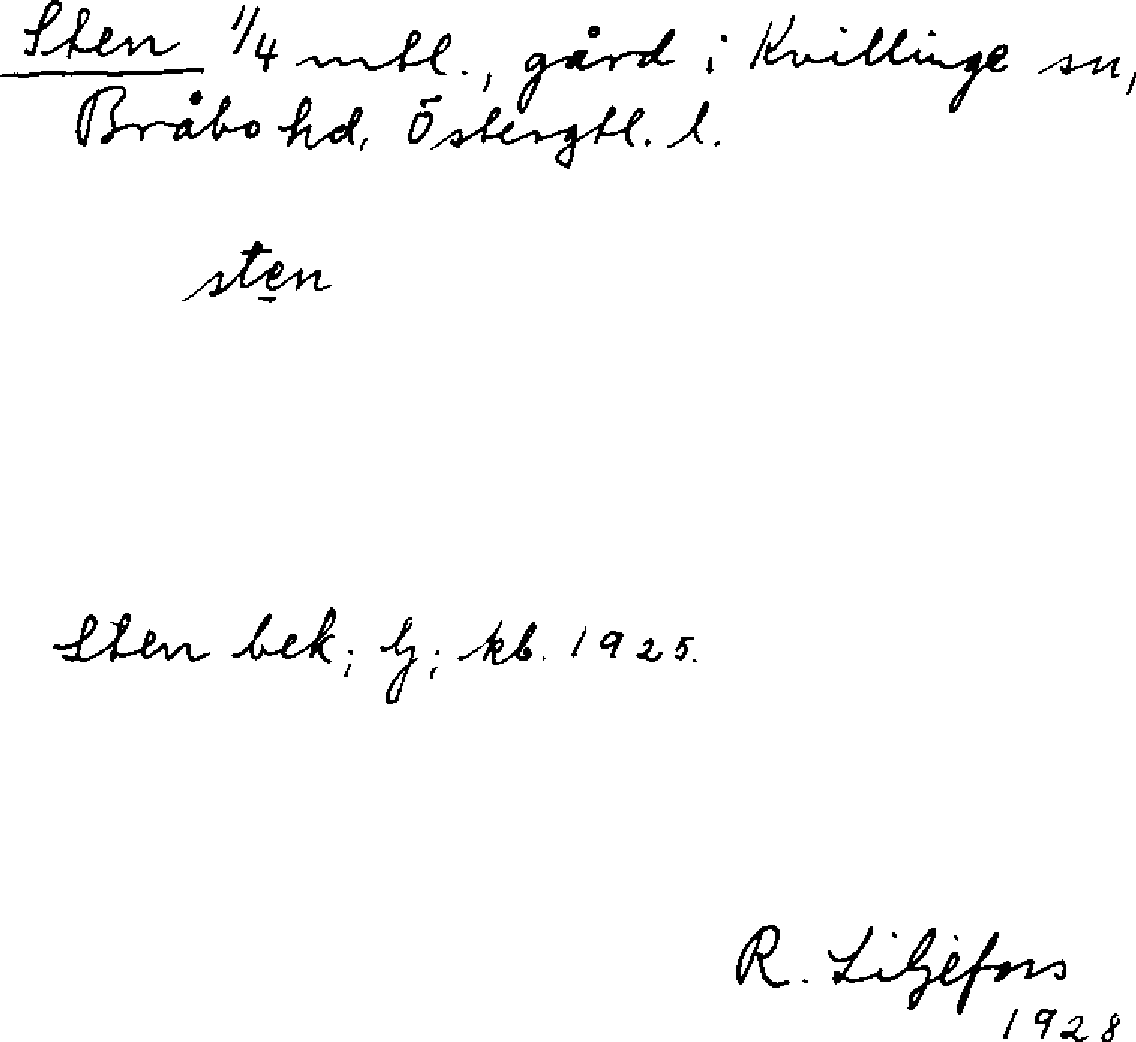 Sten 1/4 mtl., gård i Kvillinge sn,
Bråbo hd, Östergtl. l.
sten
Sten bek; lj; kb. 1925.
R. Liljefors
1928